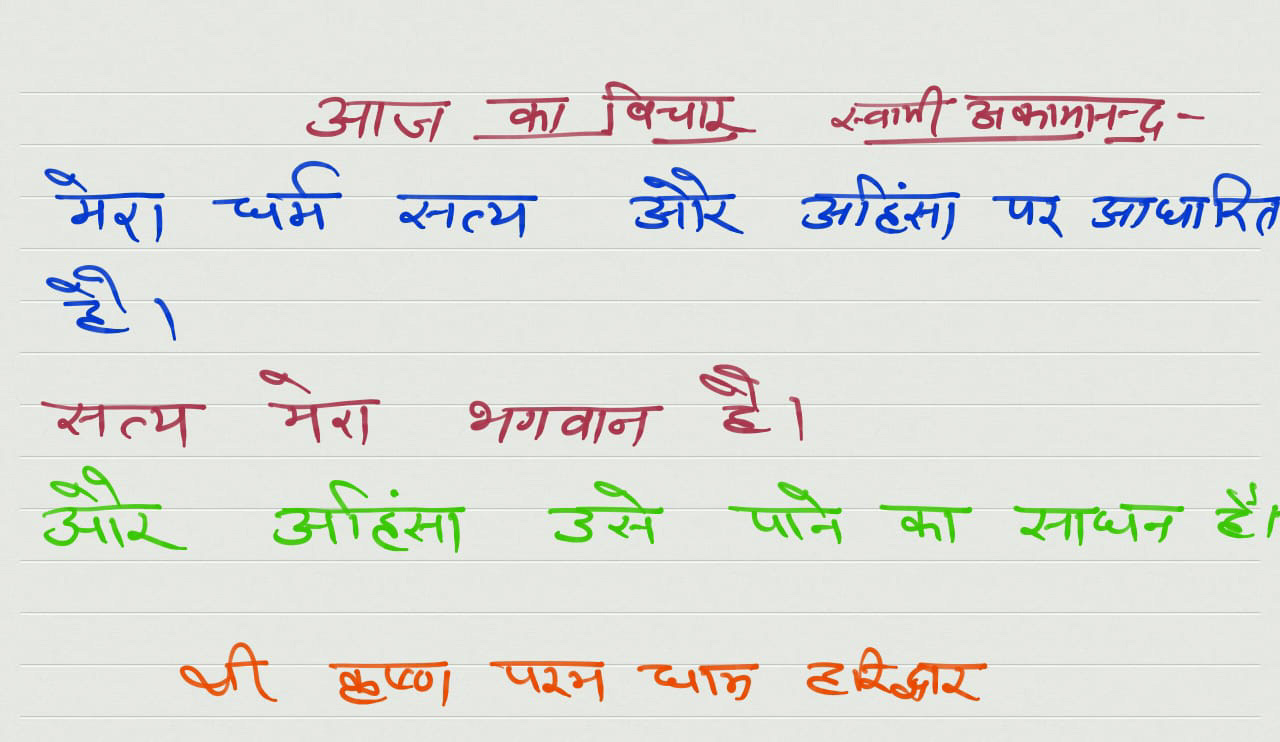 आज का विचार स्वामी अकामानन्द -
मेरा धर्म सत्य और अहिंसा पर आधारित
है ।
सत्य मेरा भगवान है ।
और अहिंसा उसे पाने का साधन है ।
श्री कृष्ण परम धाम हरिद्वार